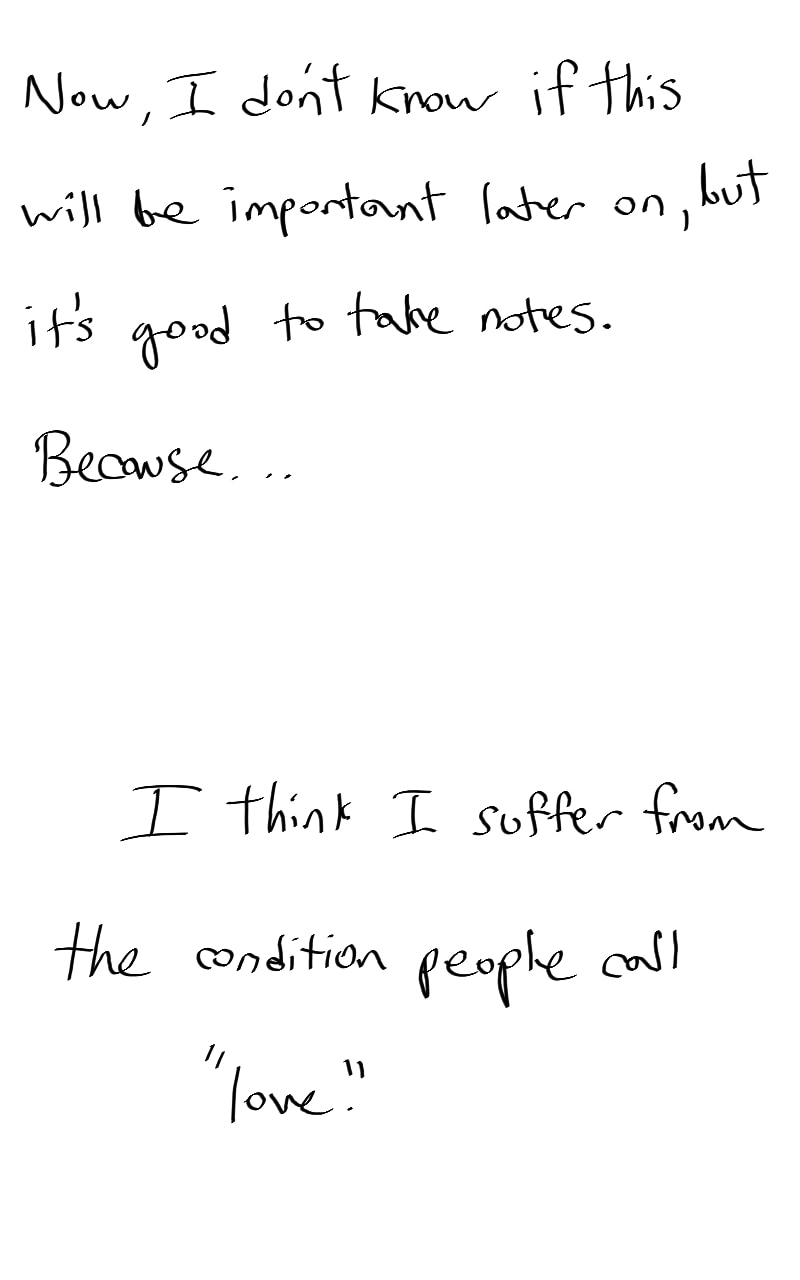 Now, I don't know if this
will be important later on, but
it's good to take notes.
Because...
I think I suffer from
the condition people call
"love."